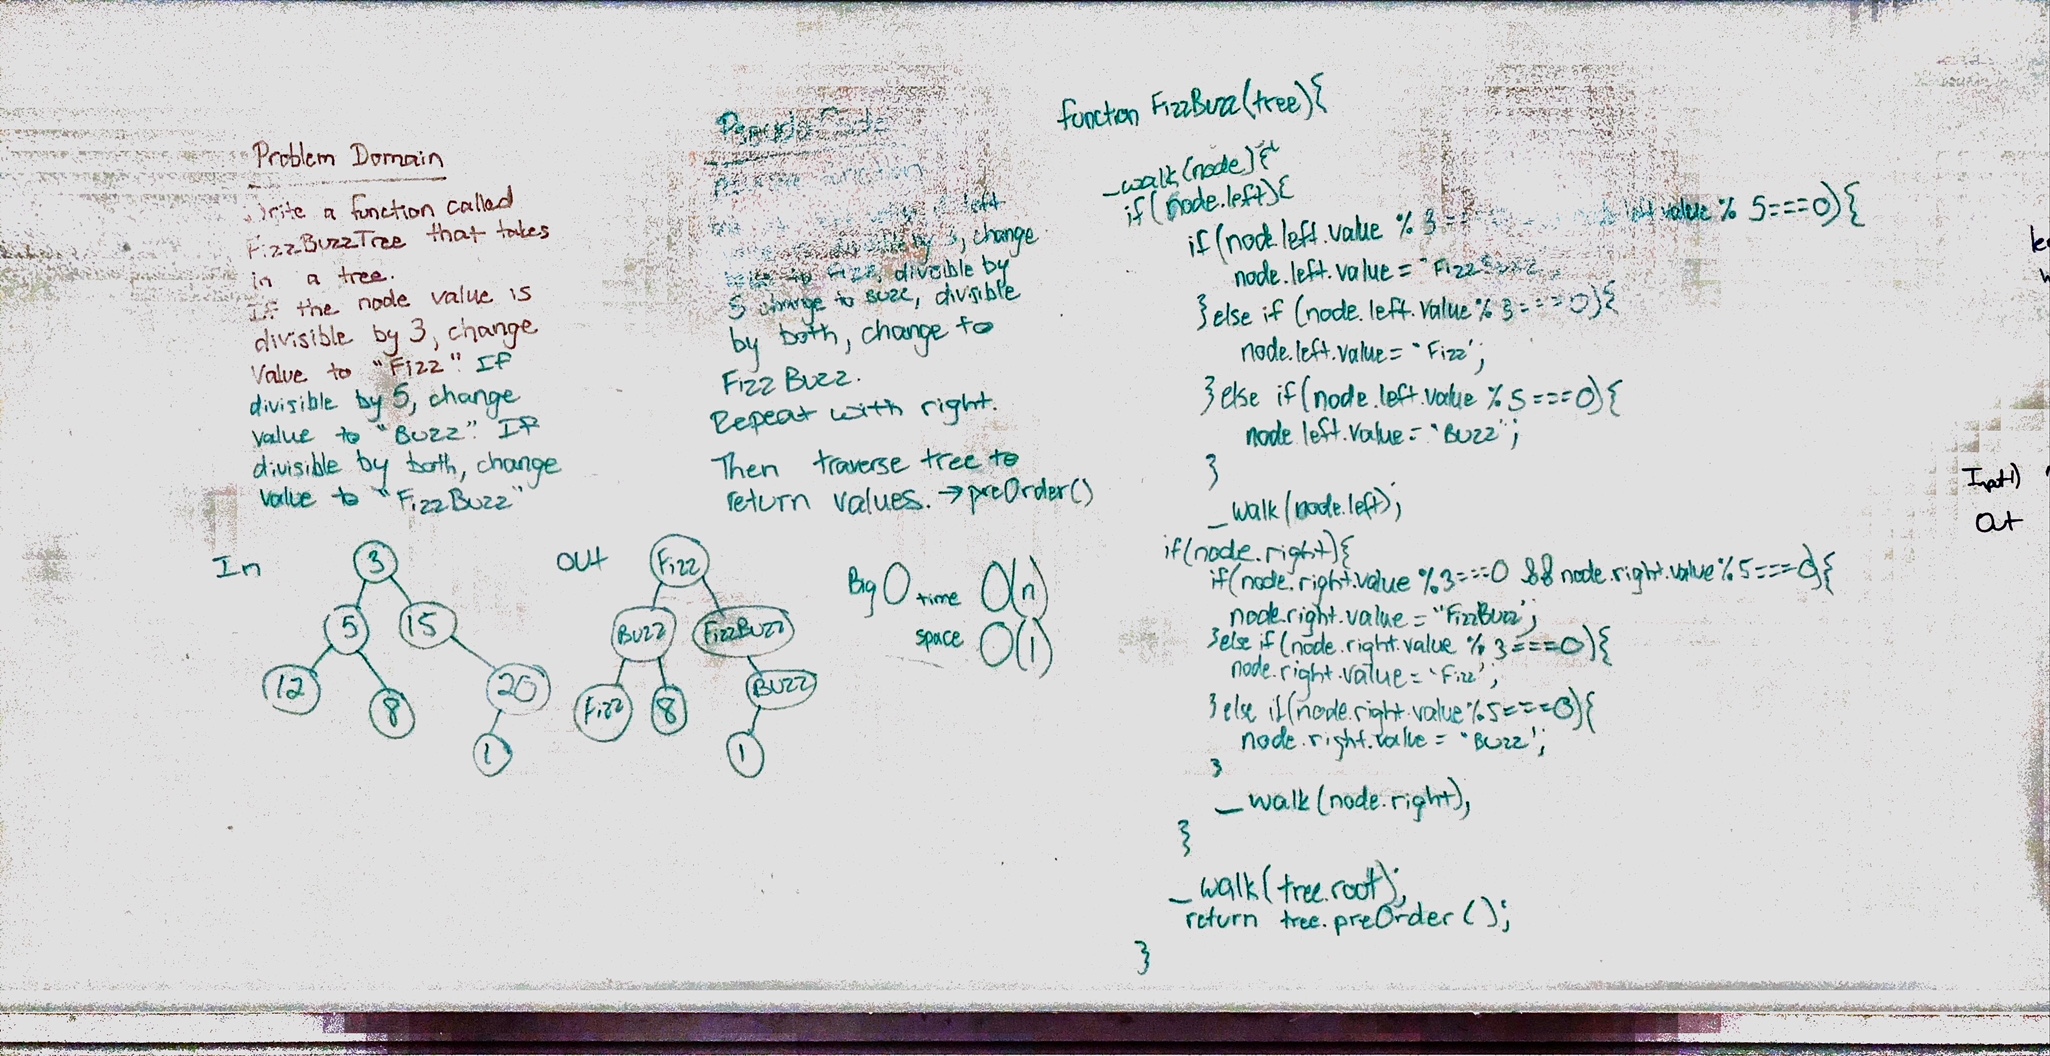 Problem Domain
Write a function called
FizzBuzzTree that takes
in a tree.
If the node value is
divisible by 3, change
value to "Fizz". If
divisible by 5, change
value to "Buzz". If
divisible by both, change
value to "FizzBuzz"
In
3
5
15
12
8
20
1
function
left
by 3, change
Fizz, divisible by
5 change to buzz, divisible
by both, change to
FizzBuzz.
Repeat with right.
Then traverse tree to
return values. → preOrder()
Out
Fizz
Buzz
FizzBuzz
Fizz
8
Buzz
1
Big O time O(n)
space O(1)
function FizzBuzz(tree){
_walk(node){
if(node.left){
if(node.left.value % 3 left.value % 5===0){
node.left.value = "Fizz
}else if (node.left.value % 3===0){
node.left.value = "Fizz';
}else if(node.left.value %5===0){
node.left.value = "Buzz";
}
_walk(node.left);
if(node.right){
if(node.right.value %3===0 && node.right.value%5===0){
node.right.value = "FizzBuzz';
}else if(node.right.value % 3===0){
node.right.value = "Fizz';
}else if(node.right.value%5===0){
node.right.value = "Buzz';
}
_walk(node.right);
}
_walk(tree.root);
return tree.preOrder();
}
Out